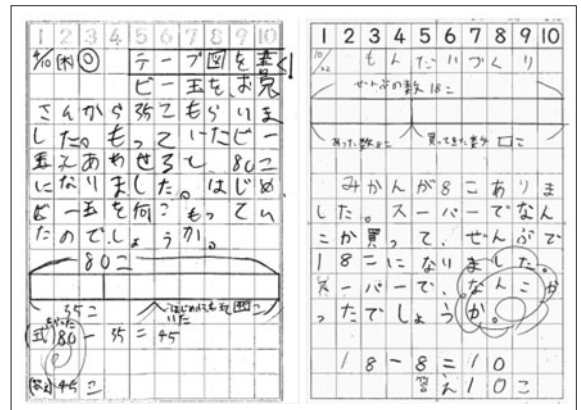 1 2 3 4 5 6 7 8 9 10
4/10 (木) ◎ テープ図を書く!
ビー玉を、お兄
さんから35こもらいま
した。もっていたビー
玉とあわせると、80こ
になりました。はじめ、
ビー玉を何こもってい
たのでしょうか。
80こ
35こ
はじめにもっていた
こ
(式) 80-35=45
(答え) 45こ
1 2 3 4 5 6 7 8 9 10
10/22 もんだいづくり
ぜんぶの数18こ
あった数8こ 買ってきた数 □こ
みかんが8こありま
した。スーパーでなん
こか買って、ぜんぶで
18こになりました。
スーパーで、なんこか
ったでしょうか。
18-8=10
答え10こ